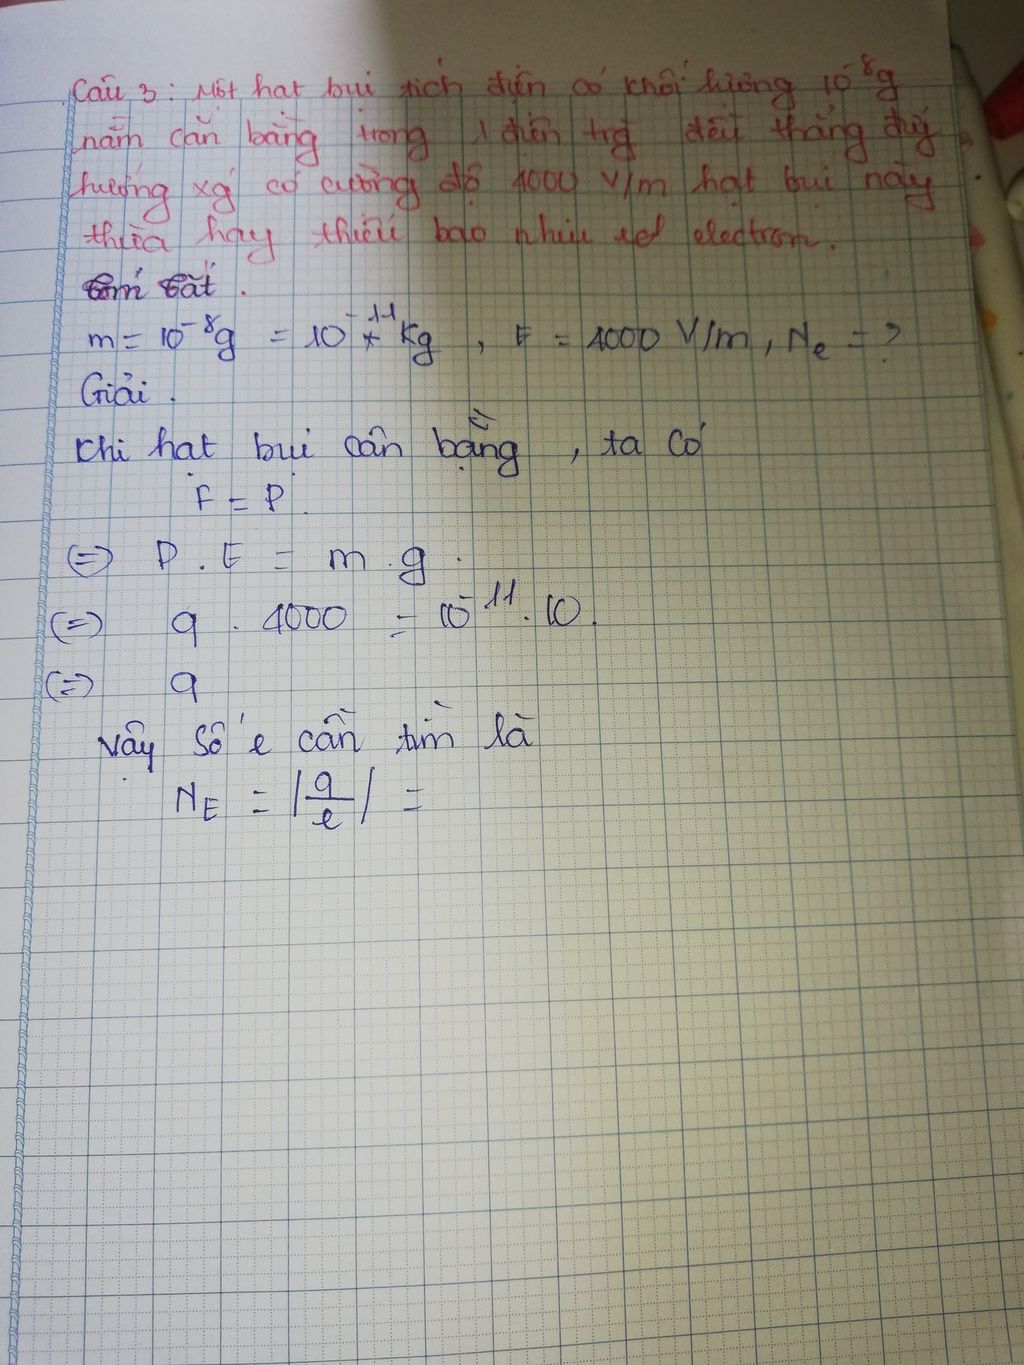 Câu 3: Một hạt bụi tích điện có khối lượng 10⁻⁸g
nằm cân bằng trong 1 điện trg đều thẳng đứg
hướng xg' có cường độ 1000 V/m hạt bụi này
thừa hay thiếu bao nhiu electron.
tóm tắt.
m = 10⁻⁸g = 10⁻¹¹ kg , E = 1000 V/m, Nₑ = ?
Giải.
Khi hạt bụi cân bằng , ta có
F = P.
(=) P . E = m . g .
(=) q . 1000 = 10⁻¹¹ . 10.
(=) q
Vậy số e cần tìm là
N_E = |q/e| =